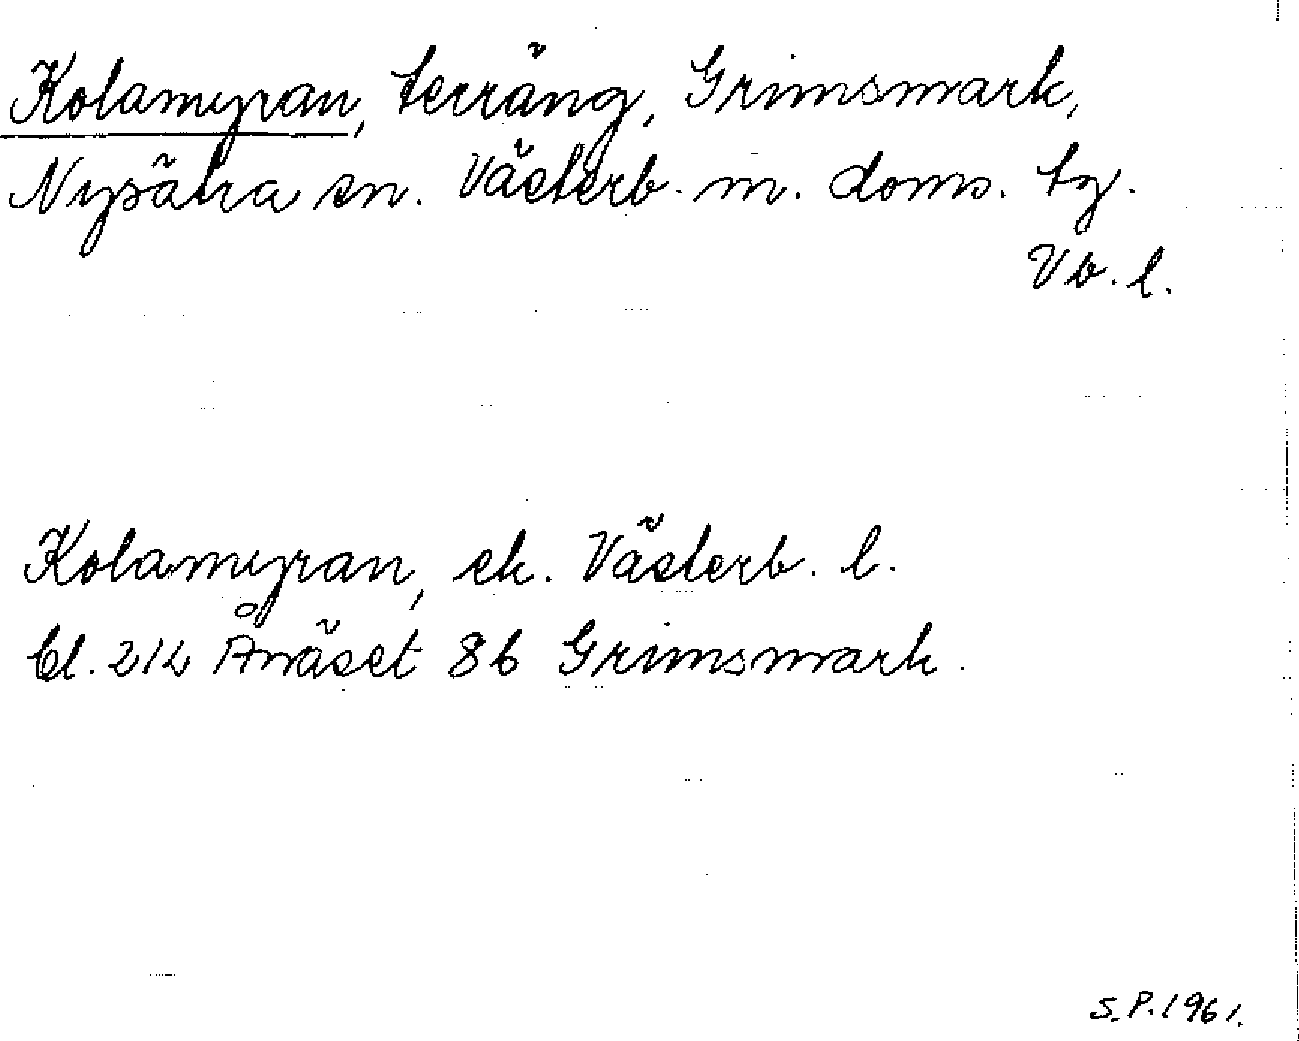 Kolamyran, terräng, Grimsmark,
Nysätra sn. Västerb. m. doms. tg.
Vb. l.
Kolamyran, ek. Västerb. l.
Bl. 212 Ånäset 8b Grimsmark.
S.P. 1961.